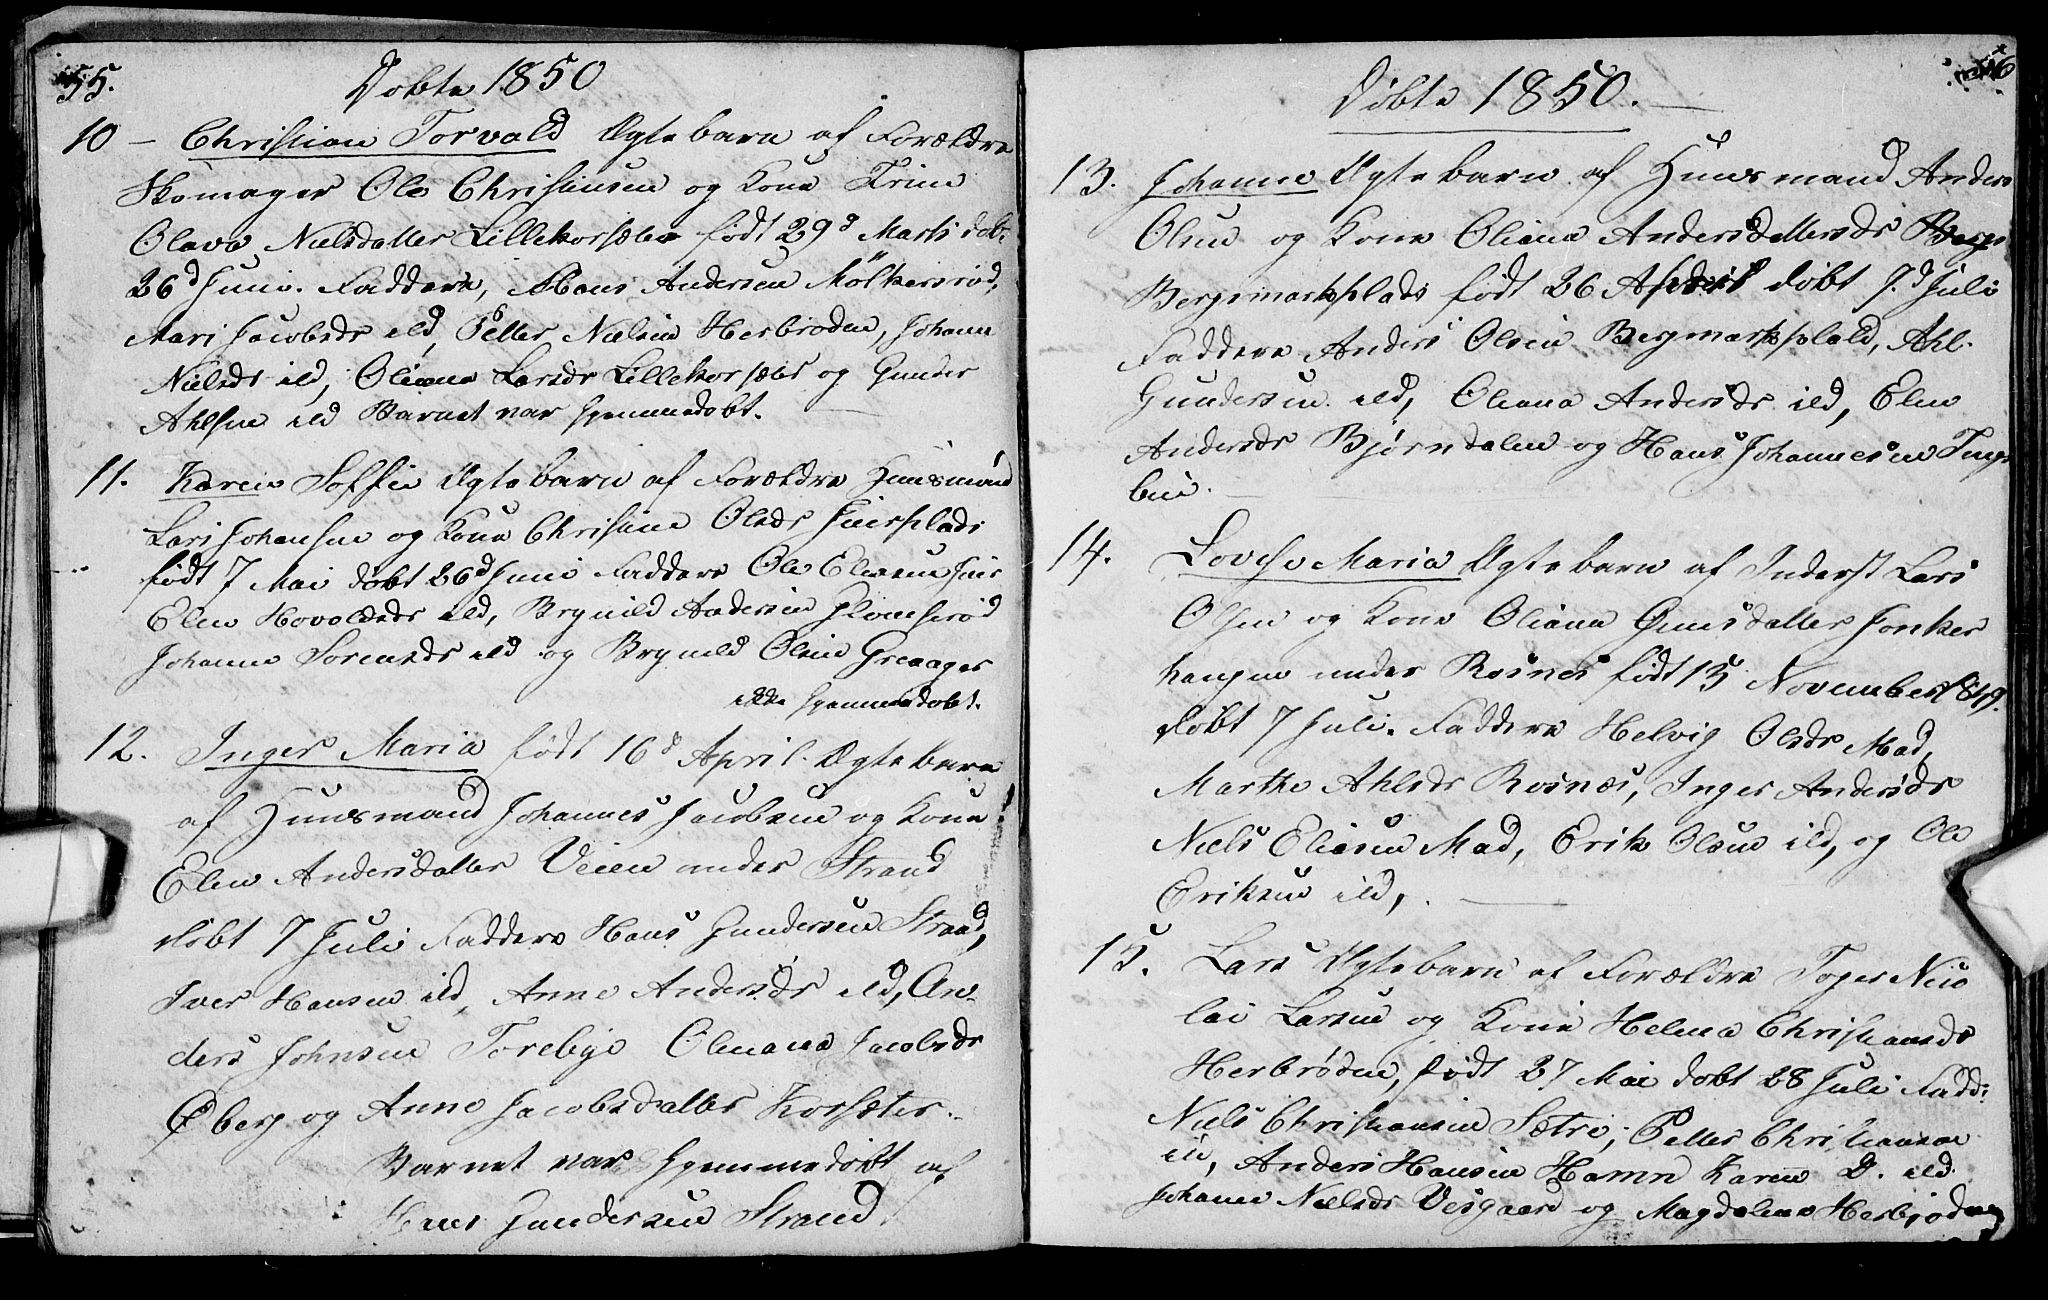 55.
Døbte 1850
10 – Christian Torvald Ægtebarn af Forældre
Skomager Ole Christensen og Kone Trine
Olava Nielsdatter Lillekorsæter født 29d Marts døbt
26d Juni. Faddere, Hans Andersen Mølkersrød,
Mari Jacobsds ild, Petter Nielsen Herbrøden, Johanne
Nielsds ild, Oliana Larsds Lillekorsæter og Gunder
Ahlsen ild Barnet var hjemmedøbt.
11. Karen Soffie Ægtebarn af Forældre Huusmand
Lars Johansen og Kone Christine Olsds
født 7 Mai døbt 26d Juni Faddere Ole Eliesen
Elen Hovolds ild, Brynild Andersen
Johanne Sørensds ild og Brynild Olsen Greaager
ikke hjemmedøbt.
12. Inger Maria født 16d April. Ægtebarn
af Huusmand Johannes Jacobsen og Kone
Elen Andersdatter Veien under Strand
døbt 7 Juli Faddere Hans Gundersen Strand,
Iver Hansen ild, Anne Andersds ild, An-
ders Johnsen Torebye Olenana Jacobsds
Øberg og Anne Jacobsdatter Korsæter.
Barnet var hjemmedøbt af
Hans Gundersen Strand.
56
Døbte 1850.
13. Johanne Ægtebarn af Huusmand Anders
Olsen og Kone Oliana Andersdatter
Bergsmarkplads født 26 April døbt 7.d Juli
Faddere Anders Olsen Bergmarkplads, Ahl.
Gundersen ild, Oliana Andersds ild, Elen
Andersds Bjørndalen og Hans Johannesen
14. Lovise Maria Ægtebarn af Inderst Lars
Olsen og Kone Oliana Gunsdatter
hougen under Rosnes født 15 November 1849.
døbt 7 Juli. Faddere Helvig Olsds Mad,
Marthe Ahlsds Rosnæs, Inger Andersds
Niels Eliesen Mad, Erik Olsen ild, og Ole
Eriksen ild,
15. Lars Ægtebarn af Forældre Toger Nico
lai Larsen og Kone Helena Christiansds
Herbrøden, født 27 Mai døbt 28 Juli Fadd:
Niels Christiansen Sætre, Petter Christiansen
ild, Anders Hansen Hamn Karen D. ild
Johanne Nielsds Vesgaard og Magdalene Herbrøden